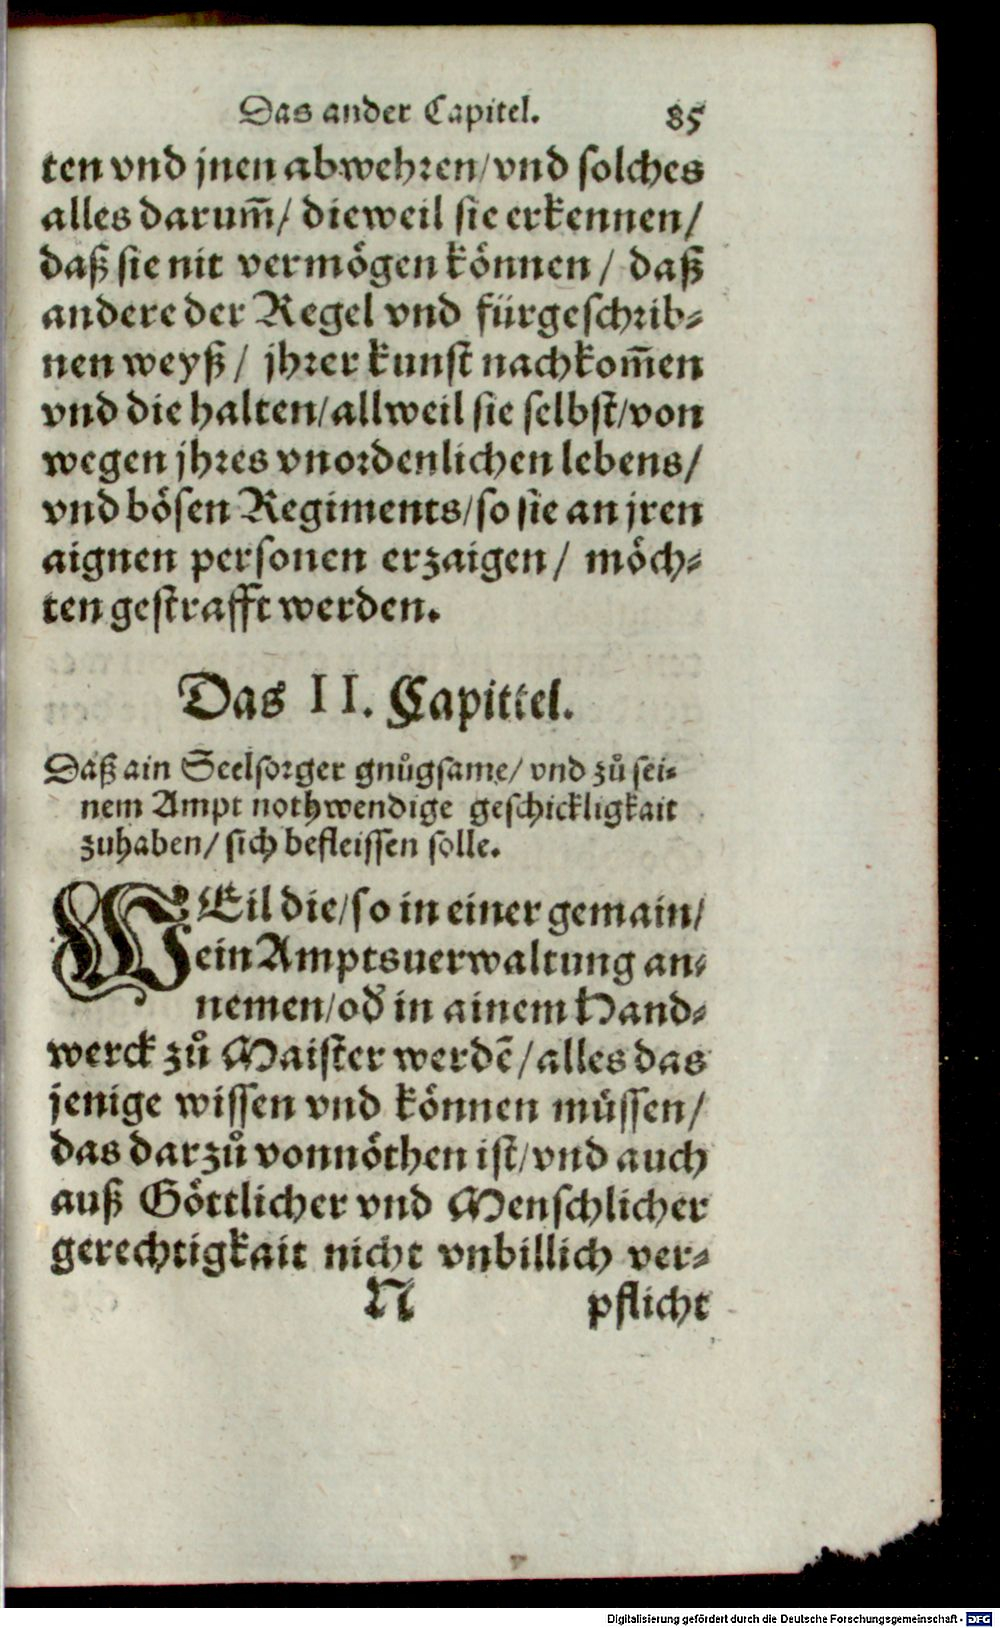 Das ander Capitel. 85
ten vnd jnen abwehren/vnd solches
alles darum̄/ dieweil sie erkennen/
daß sie nit vermögen können/ daß
andere der Regel vnd fürgeschrib⸗
nen weyß/ jhrer kunst nachkom̄en
vnd die halten/allweil sie selbst/von
wegen jhres vnordenlichen lebens/
vnd bösen Regiments/so sie an jren
aignen personen erzaigen/ möch⸗
ten gestrafft werden.
Das II. Capittel.
Daß ain Seelsorger gnůgsame/ vnd zů sei⸗
nem Ampt nothwendige geschickligkait
zuhaben/ sich befleissen solle.
WEil die/so in einer gemain/
ein Amptsuerwaltung an⸗
nemen/od̄ in ainem Hand⸗
werck zů Maister werdē/alles das
jenige wissen vnd können müssen/
das darzů vonnöthen ist/vnd auch
auß Göttlicher vnd Menschlicher
gerechtigkait nicht vnbillich ver⸗
N pflicht
Digitalisierung gefördert durch die Deutsche Forschungsgemeinschaft - DFG